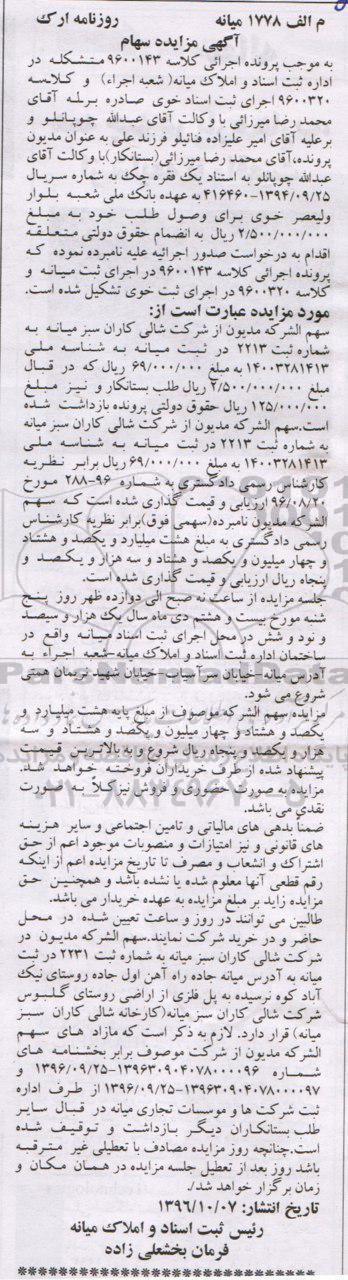 م الف ۱۷۷۸ میانه روزنامه ارک
آگهی مزایده سهام
به موجب پرونده اجرائی کلاسه ۹۶۰۰۱۴۳ متشکله در
اداره ثبت اسناد و املاک میانه( شعبه اجراء) و کلاسه
۹۶۰۰۳۲۰ اجرای ثبت اسناد خوی صادره برله آقای
محمد رضا میرزائی با وکالت آقای عبدالله چوپانلو و
برعلیه آقای امیر علیزاده فنائیلو فرزند علی به عنوان مدیون
پرونده،آقای محمد رضا میرزائی(بستانکار)با وکالت آقای
عبدالله چوپانلو به استناد یک فقره چک به شماره سریال
۱۳۹۴/۰۹/۲۵-۴۱۶۴۶۰ به عهده بانک ملی شعبه بلوار
ولیعصر خوی برای وصول طلب خود به مبلغ
۲/۵۰۰/۰۰۰/۰۰۰ ریال به انضمام حقوق دولتی متعلقه
اقدام به درخواست صدور اجرائیه علیه نامبرده نموده که
پرونده اجرائی کلاسه ۹۶۰۰۱۴۳ در اجرای ثبت میانه و
کلاسه ۹۶۰۰۳۲۰ در اجرای ثبت خوی تشکیل شده است.
مورد مزایده عبارت است از:
سهم الشرکه مدیون از شرکت شالی کاران سبز میانه به
شماره ثبت ۲۲۱۳ در ثبت میانه به شناسه ملی
۱۴۰۰۳۲۸۱۴۱۳ به مبلغ ۶۹/۰۰۰/۰۰۰ ریال که در قبال
مبلغ ۲/۵۰۰/۰۰۰/۰۰۰ ریال طلب بستانکار و نیز مبلغ
۱۲۵/۰۰۰/۰۰۰ ریال حقوق دولتی پرونده بازداشت شده
است.سهم الشرکه مدیون از شرکت شالی کاران سبز میانه
به شماره ثبت ۲۲۱۳ در ثبت میانه به شناسه ملی
۱۴۰۰۳۲۸۱۴۱۳ به مبلغ ۶۹/۰۰۰/۰۰۰ ریال برابر نظریه
کارشناس رسمی دادگستری به شماره ۹۶-۲۸۸ مورخ
۹۶/۰۸/۲۰ ارزیابی و قیمت گذاری شده است که سهم
الشرکه مدیون نامبرده(سهمی فوق)برابر نظریه کارشناس
رسمی دادگستری به مبلغ هشت میلیارد و یکصد و هشتاد
و چهار میلیون و یکصد و هشتاد و سه هزار و یکصد و
پنجاه ریال ارزیابی و قیمت گذاری شده است.
جلسه مزایده از ساعت نه صبح الی دوازده ظهر روز پنج
شنبه مورخ بیست و هشتم دی ماه سال یک هزار و سیصد
و نود و شش در محل اجرای ثبت اسناد میانه واقع در
ساختمان اداره ثبت اسناد و املاک میانه-شعبه اجراء به
آدرس میانه-خیابان سرآسیاب-خیابان شهید نریمان همتی
شروع می شود.
مزایده سهم الشرکه موصوف از مبلغ پایه هشت میلیارد و
یکصد و هشتاد و چهار میلیون و یکصد و هشتاد و سه
هزار و یکصد و پنجاه ریال شروع و به بالاترین قیمت
پیشنهاد شده از طرف خریداران فروخته خواهد شد.
مزایده به صورت حضوری و فروش نیز کلاً به صورت
نقدی می باشد.
ضمناً بدهی های مالیاتی و تامین اجتماعی و سایر هزینه
های قانونی و نیز امتیازات و منصوبات موجود اعم از حق
اشتراک و انشعاب و مصرف تا تاریخ مزایده اعم از اینکه
رقم قطعی آنها معلوم شده یا نشده باشد و همچنین حق
مزایده زاید بر مبلغ مزایده به عهده خریدار می باشد.
طالبین می توانند در روز و ساعت تعیین شده در محل
حاضر و در خرید شرکت نمایند.سهم الشرکه مدیون در
شرکت شالی کاران سبز میانه به شماره ثبت ۲۲۳۱ در ثبت
میانه به آدرس میانه جاده راه آهن اول جاده روستای نیک
آباد کوه نرسیده به پل فلزی از اراضی روستای گلبوس
شرکت شالی کاران سبز میانه(کارخانه شالی کاران سبز
میانه) قرار دارد. لازم به ذکر است که مازاد های سهم
الشرکه مدیون از شرکت موصوف برابر بخشنامه های
شماره ۱۳۹۶۳۰۹۰۴۰۷۸۰۰۰۰۹۶-۱۳۹۶/۰۹/۲۵ و
۱۳۹۶۳۰۹۰۴۰۷۸۰۰۰۰۹۷-۱۳۹۶/۰۹/۲۵ از طرف اداره
ثبت شرکت ها و موسسات تجاری میانه در قبال سایر
طلب بستانکاران دیگر بازداشت و توقیف شده
است.چنانچه روز مزایده مصادف با تعطیلی غیر مترقبه
باشد روز بعد از تعطیل جلسه مزایده در همان مکان و
زمان برگزار خواهد شد./
تاریخ انتشار: ۱۳۹۶/۱۰/۰۷
رئیس ثبت اسناد و املاک میانه
فرمان بخشعلی زاده